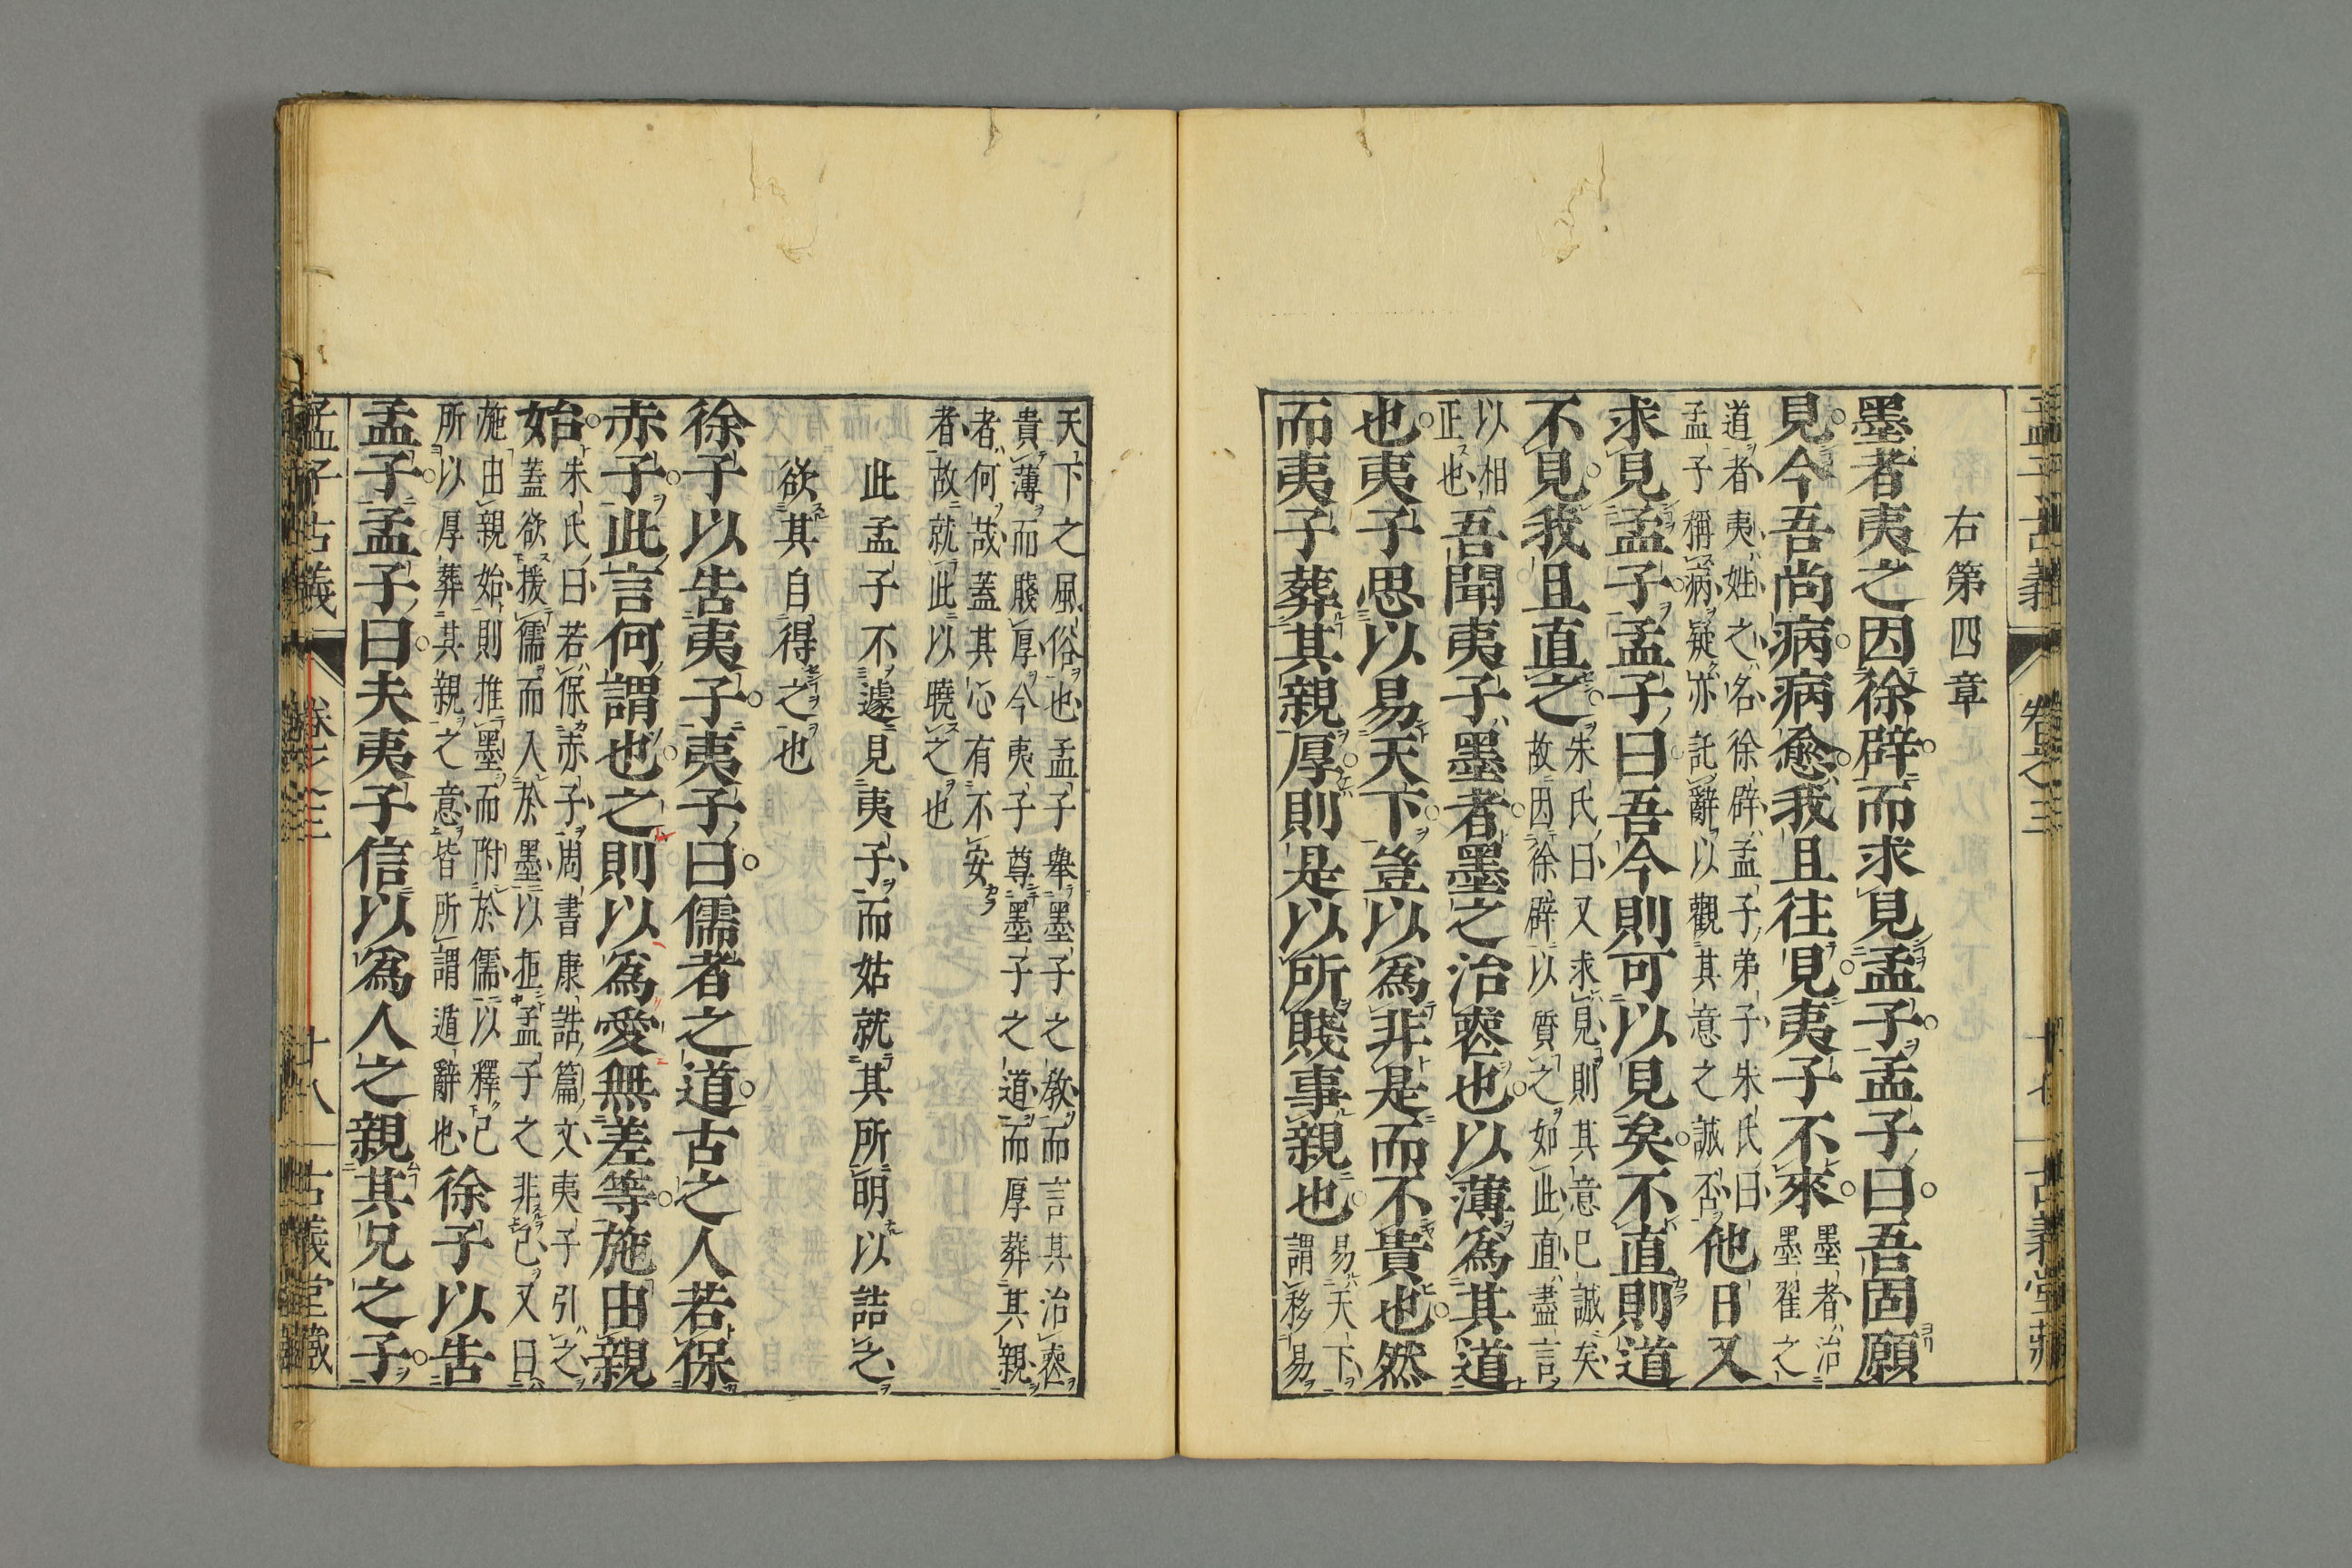 右第四章
墨者夷之因徐辟而求見孟子孟子曰吾固願
見今吾尚病病愈我且往見夷子不來墨者治
墨翟之
道者夷姓之名徐辟孟子弟子朱氏曰
孟子稱病疑亦託辭以觀其意之誠否他日又
求見孟子孟子曰吾今則可以見矣不直則道
不見我且直之朱氏曰又求見則其意已誠矣
故因徐辟以質之如此直盡言
以相
正也吾聞夷子墨者墨之治喪也以薄爲其道
也夷子思以易天下豈以爲非是而不貴也然
而夷子葬其親厚則是以所賤事親也易天下
謂移易
天下之風俗也孟子舉墨子之教而言其治喪
貴薄而賤厚今夷子尊墨子之道而厚葬其親
者何哉蓋其心有不安
者故就此以曉之也
此孟子不遽見夷子而姑就其所明以詰之
欲其自得之也
徐子以告夷子夷子曰儒者之道古之人若保
赤子此言何謂也之則以爲愛無差等施由親
始朱氏曰若保赤子周書康誥篇文夷子引之
蓋欲援儒而入於墨以拒孟子之非己又曰
施由親始則推墨而附於儒以釋己
所以厚葬其親之意皆所謂遁辭也徐子以告
孟子孟子曰夫夷子信以爲人之親其兄之子
孟子古義 卷之三 十八 古義堂藏